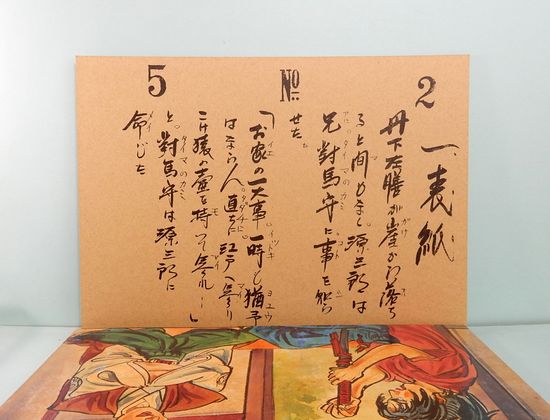 2
No
5
一、表紙
丹下左膳が崖から落ち
ると間もなく源三郎は
兄對馬守に事を知ら
せた。
「お家の一大事一時も猶予
はならん直ちに江戸へ参り
こけ猿の壷を持って参れ！」
と。對馬守は源三郎に
命じた